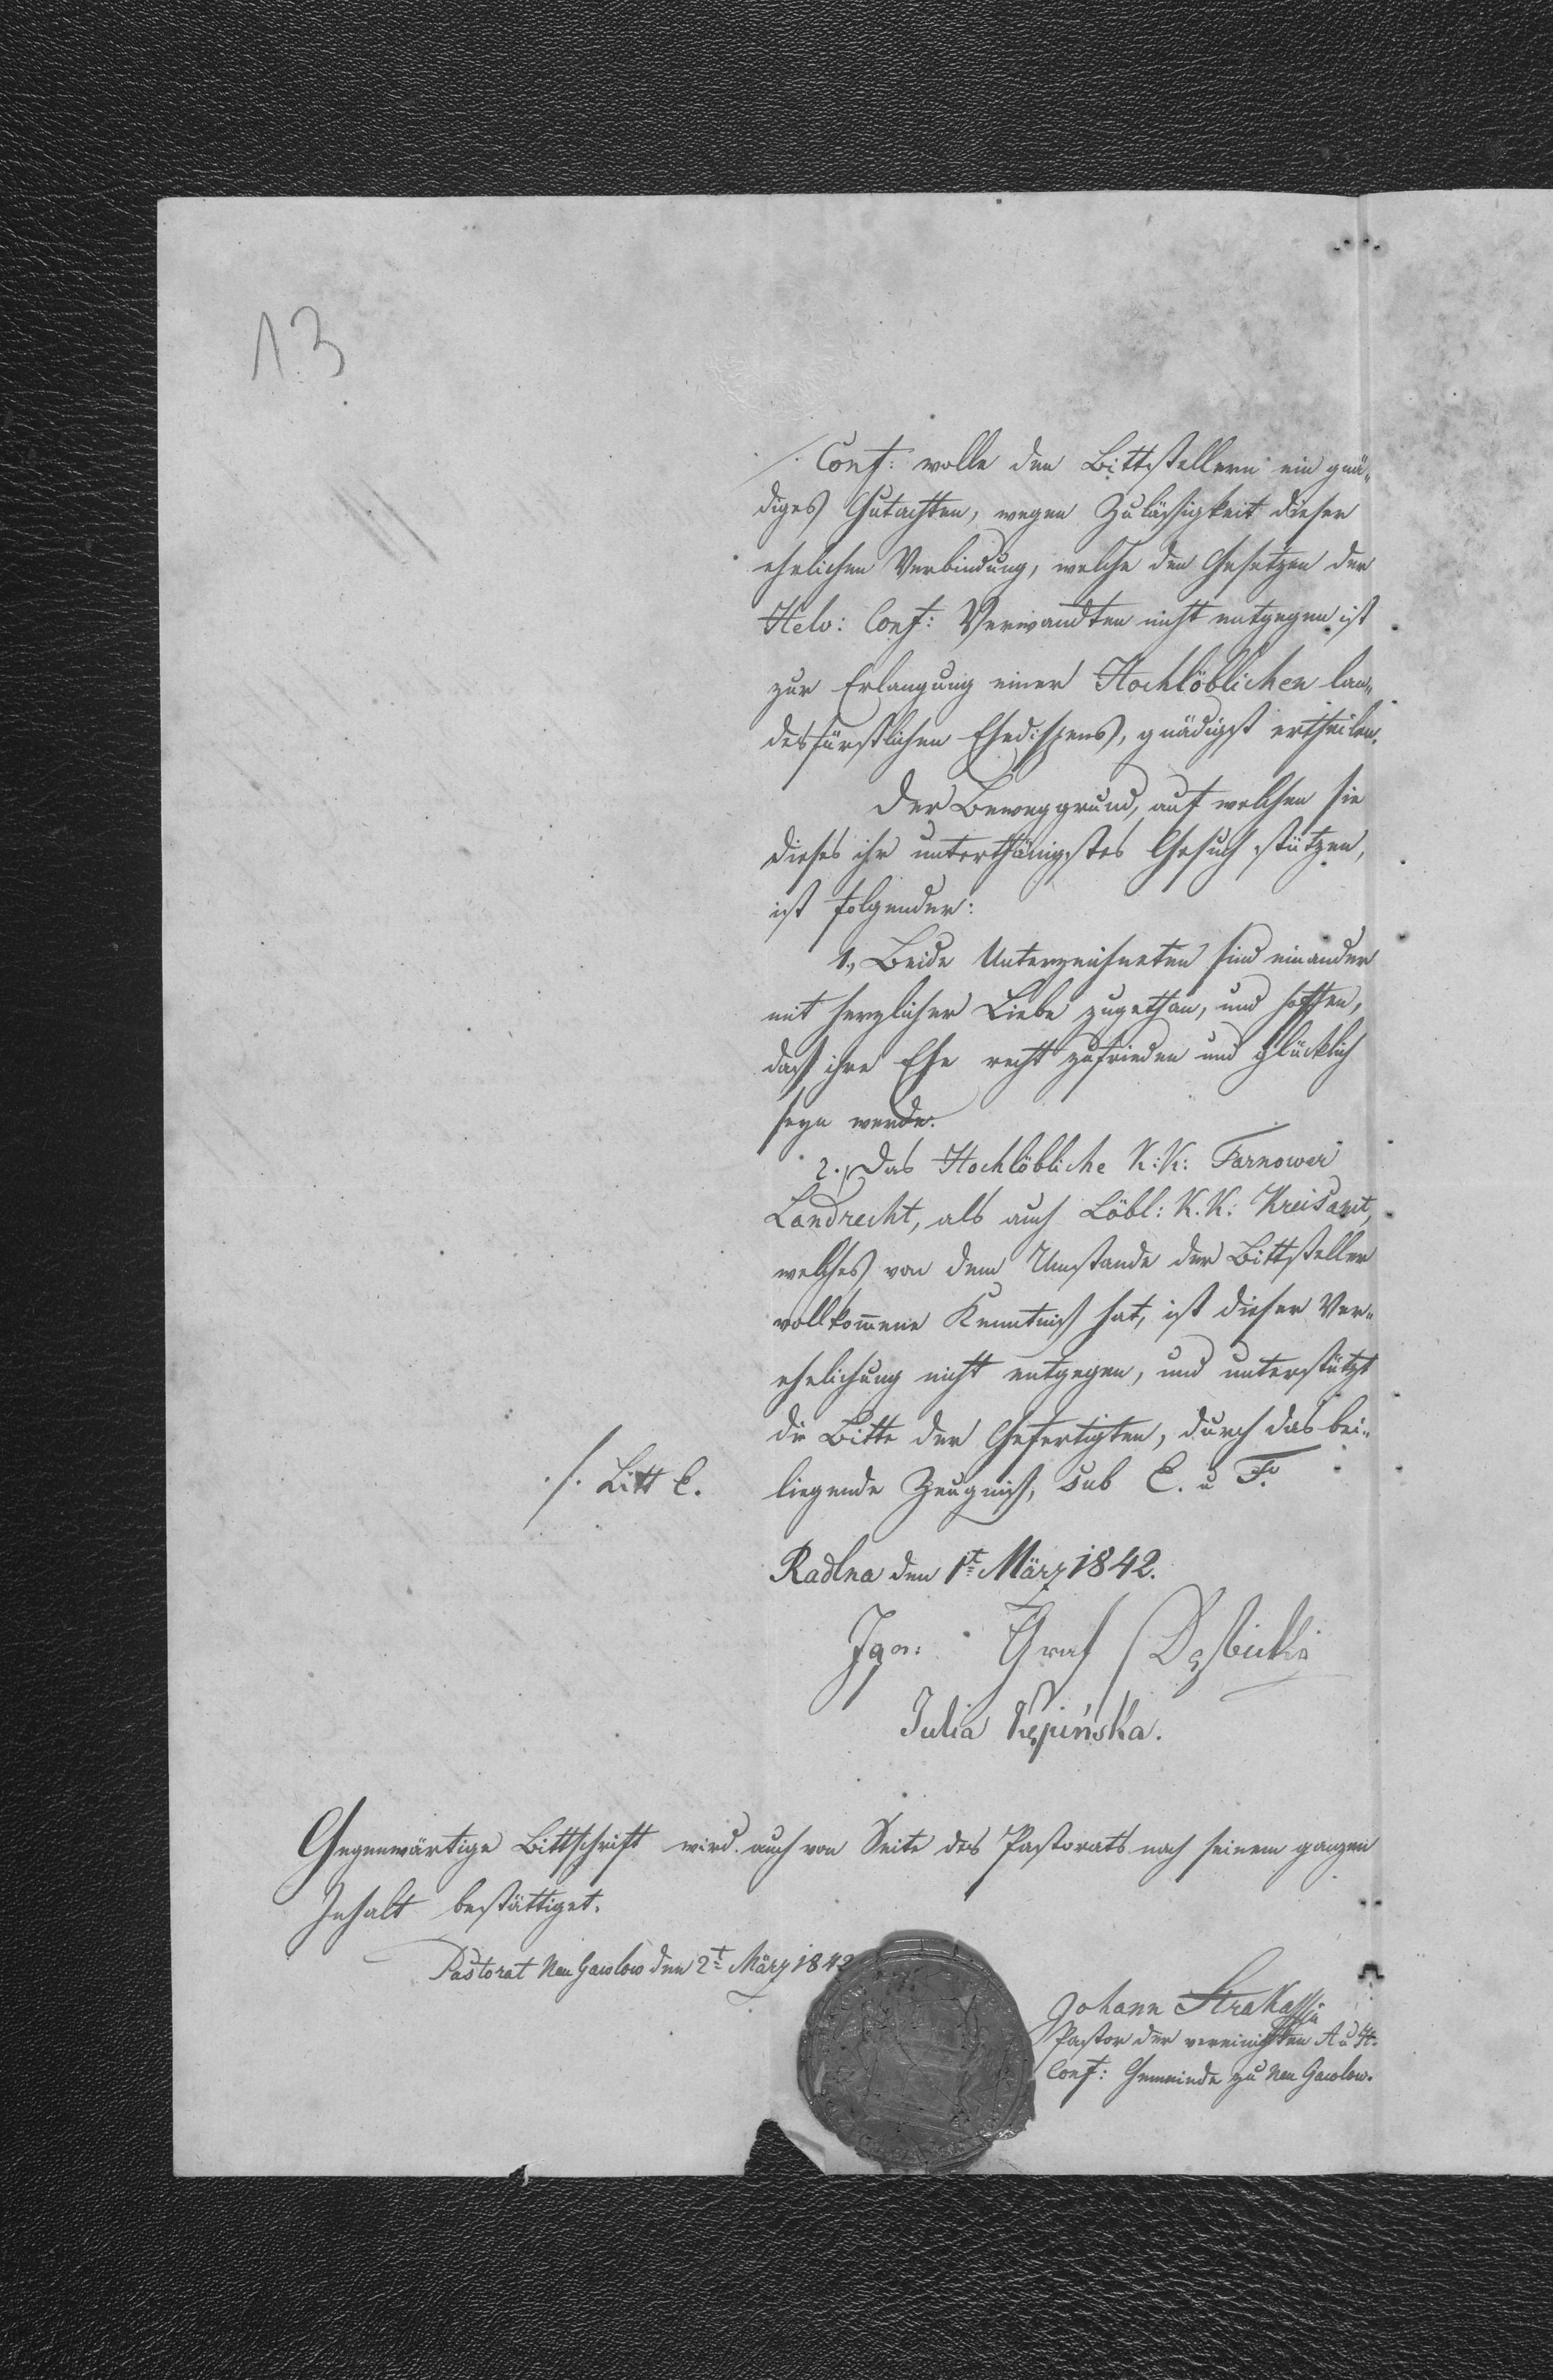 13
Conf: wolle den Bittstellern ein gnä„
diges Gutachten, wegen Zulässigkeit dieser
ehelichen Verbindung, welche den Gesetzen der
Helv: Conf: Verwandten nicht entgegen ist
zur Erlangung einer Hochlöblichen lan„
desfürstlichen Ehedispens, gnädigst ertheilen.
Der Beweggrund, auf welchen sie
dieses ihr unterthänigstes Gesuch stützen,
ist folgender:
1., Beide Unterzeichneten sind einander
mit herzlicher Liebe zugethan, und hoffen,
daß ihre Ehe recht zufrieden und glücklich
seyn werde.
2., Das Hochlöbliche K: K: Tarnower
Landrecht, als auch Löbl: K. K: Kreisamt,
welches von dem Umstande der Bittsteller
vollkom̅ene Kenntniß hat, ist dieser Ver„
ehelichung nicht entgegen, und unterstützt
die Bitte der Gefertigten, durch das bei„
./. Litt E.
liegende Zeugniß, sub E. u F.
Radlna den 1t März 1842.
Ign: Graf Dębicki
Julia Kępińska.
Gegenwärtige Bittschrift wird auch von Seite des Pastorats nach seinem ganzen
Inhalt bestättiget.
Pastorat Neu Gawlow den 2t März 1842
Johann
Pastor der vereinigten A u H.
Conf: Gemeinde zu Neu Gawlow.